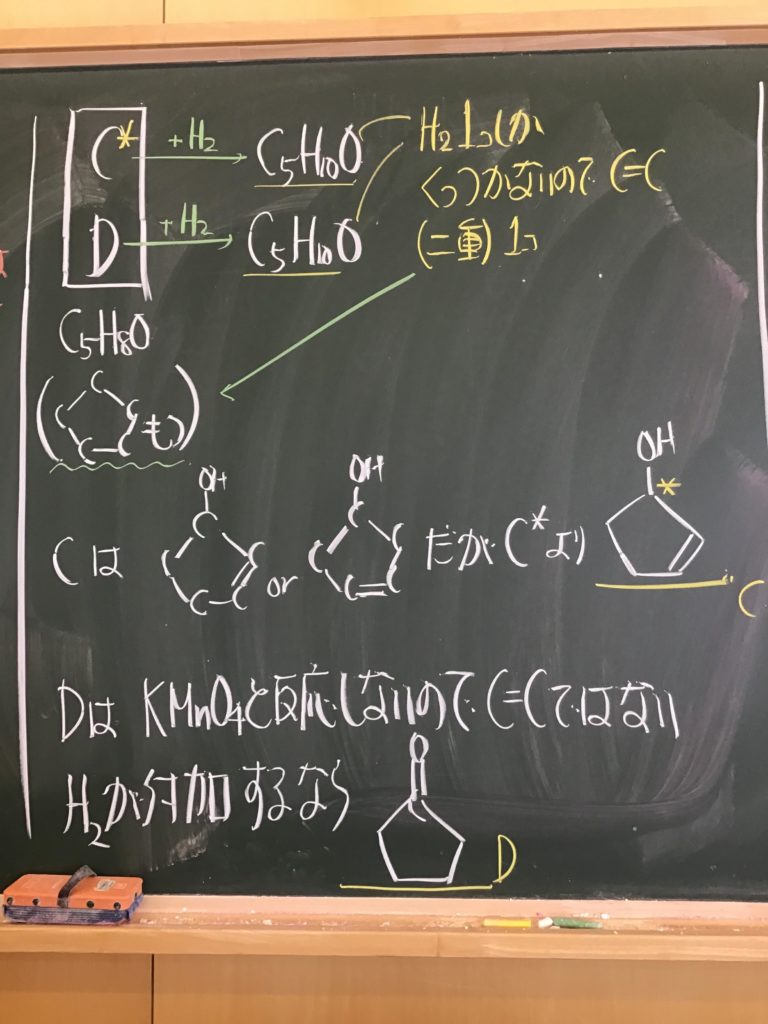 C* +H2 → C5H10O
D +H2 → C5H10O
H2 1コしか
くっつかないので C=C
(二重) 1コ
C5H8O
(C C C C C もつ)
Cは OH C C C C C or OH C C C C C だが C*より OH * C
Dは KMnO4と反応しないので C=Cではない
H2が付加するなら O D